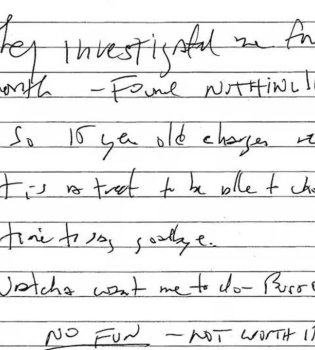 They investigated me for
month - Found NOTHING!!
So 15 year old charges re
It is a treat to be able to cho
time to say goodbye.
Watcha want me to do - Burs
NO FUN - NOT WORTH IT